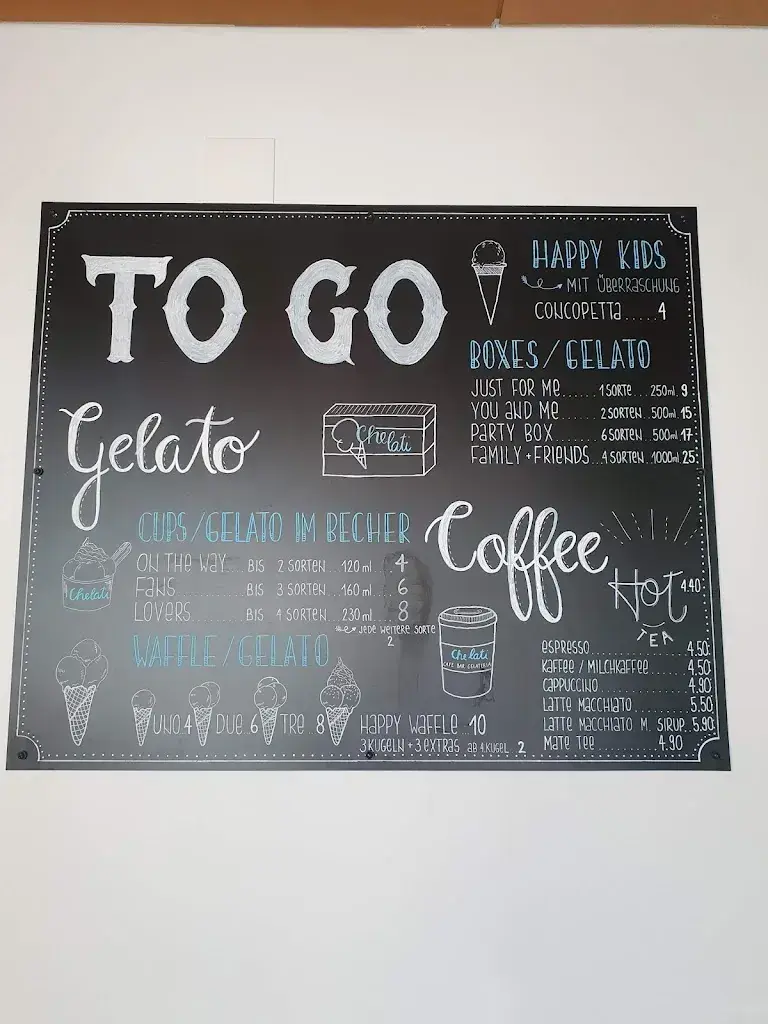 TO GO
HAPPY KIDS
MIT ÜBERRASCHUNG
CONCOPETTA......4
BOXES / GELATO
JUST FOR ME......1 SORTE...250ml.9
YOU AND ME......2 SORTEN..500ml.15
PARTY BOX.......6 SORTEN..500ml.17
FAMILY + FRIENDS...4 SORTEN.1000ml.25
Gelato
Chelati
CUPS / GELATO IM BECHER
ON THE WAY....BIS 2 SORTEN...120ml....4
FANS BIS 3 SORTEN...160ml....6
LOVERS BIS 4 SORTEN...230ml....8
JEDE WEITERE SORTE
2
Chelati
WAFFLE / GELATO
UNO.4 DUE..6 TRE..8 HAPPY WAFFLE..10
3 KUGELN + 3 EXTRAS AB 4.KUGEL..2
Coffee
Hot 4.40
TEA
Chelati
CAFE BAR GELATERIA
ESPRESSO............4.50
KAFFEE / MILCHKAFFEE......4.50
CAPPUCCINO............4.90
LATTE MACCHIATO........5.50
LATTE MACCHIATO M. SIRUP..5.90
MATE TEE.........4.90